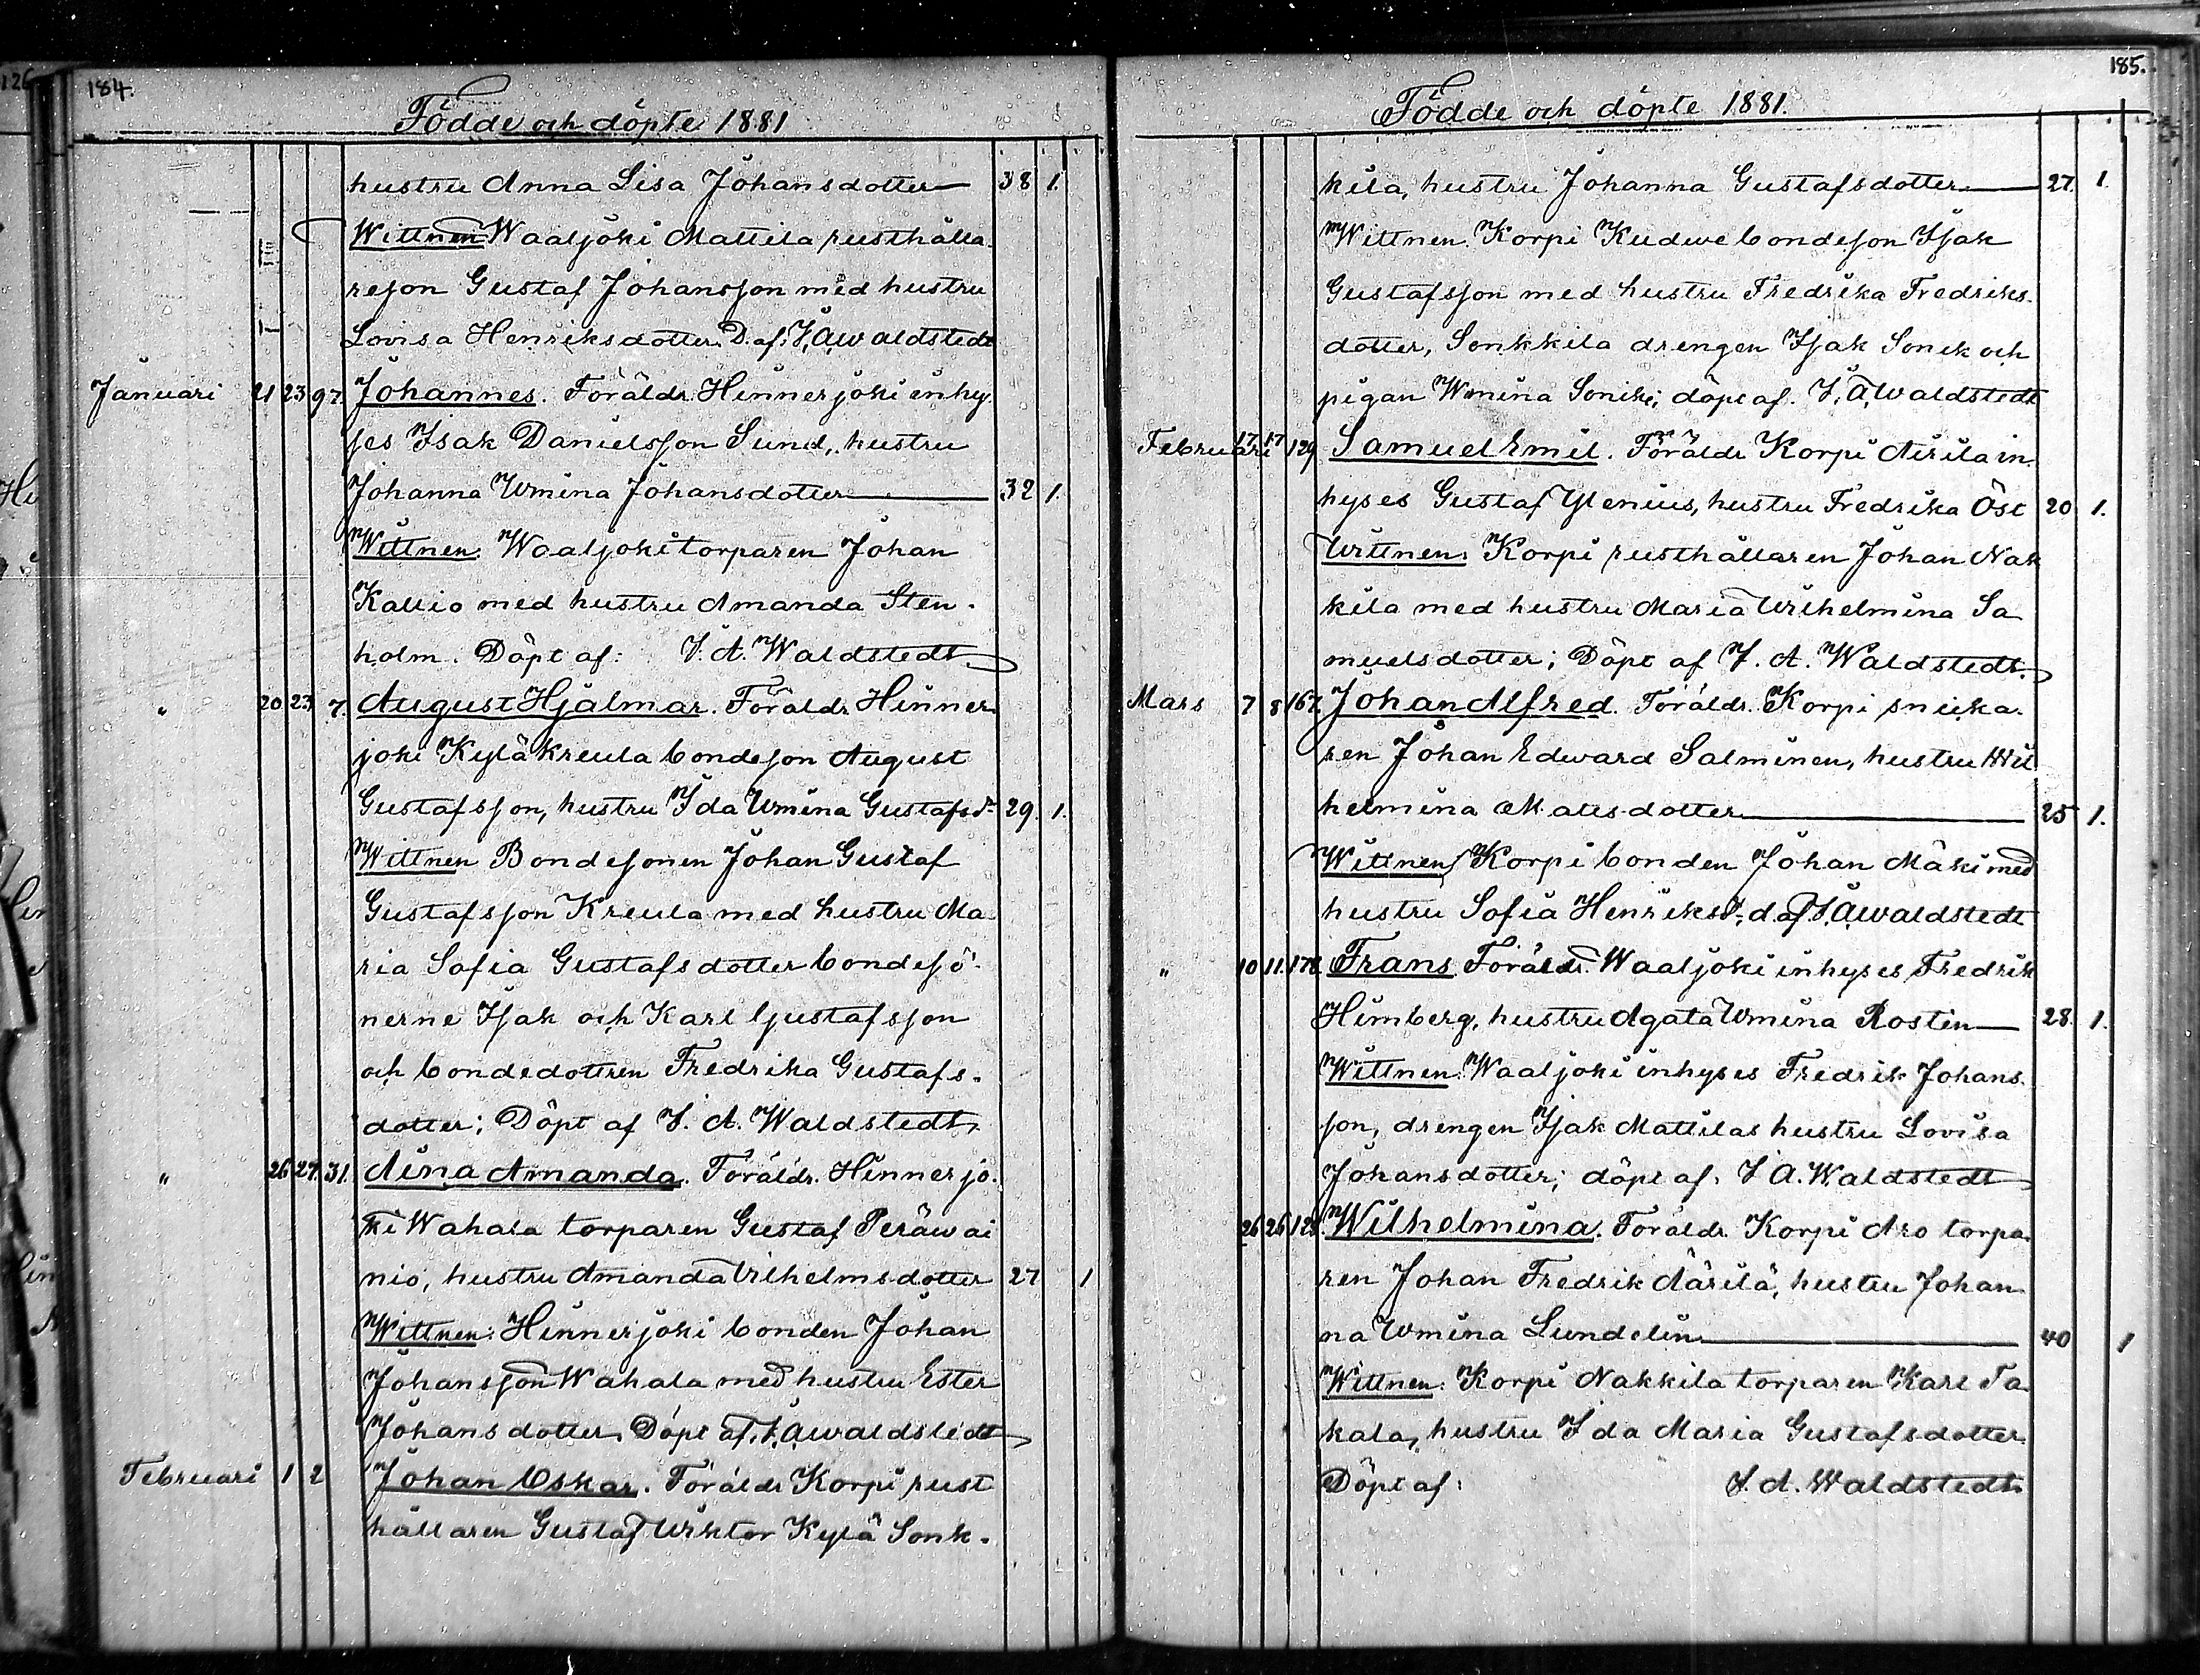 184.
Födde och döpte 1881
hustru Anna Lisa Johansdotter 38 1.
Wittnen Waaljoki Mattila rusthålla-
reson Gustaf Johansson med hustru
Lovisa Henriksdotter. D. af. J. A. Waldstedt
Januari 21 23 97. Johannes. Föräldr. Hinnerjoki inhy-
ses Isak Danielsson Sund, hustru
Johanna Wmina Johansdotter 32 1.
Wittnen. Waaljoki torparen Johan
Kallio med hustru Amanda Sten-
holm. Döpt af: J. A. Waldstedt
" 20 23 7. August Hjalmar. Föräldr. Hinner-
joki Kyläkreula bondeson August
Gustafsson, hustru Ida Wmina Gustafsdr 29. 1.
Wittnen Bondesonen Johan Gustaf
Gustafsson Kreula med hustru Ma-
ria Sofia Gustafsdotter bondesö-
nerne Isak och Karl Gustafsson
och bondedottren Fredrika Gustafs-
dotter; Döpt af J. A. Waldstedt.
" 26 27. 31. Aina Amanda. Föräldr. Hinnerjo-
ki Wahala torparen Gustaf Peräwai
nio, hustru Amanda Wilhelmsdotter 27 1
Wittnen: Hinnerjoki bonden Johan
Johansson Wahala med hustru Ester
Johansdotter. Döpt af. J. A. Waldstedt
Februari 1 2 Johan Oskar. Föräldr. Korpi rust-
hållaren Gustaf Wiktor Kylä Sonk-
185.
Födde och döpte 1881.
kila, hustru Johanna Gustafsdotter 27. 1.
Wittnen. Korpi Kudwe bondeson Isak
Gustafsson med hustru Fredrika Fredriks-
dotter, Sonkkila drengen Isak Sonck och
pigan Wmina Sonck; döpt af. J. A. Waldstedt
Februari 17 17 129 Samuel Emil. Föräldr. Korpi Airila in-
hyses Gustaf Ylenius, hustru Fredrika Öst 20 1.
Wittnen: Korpi rusthållaren Johan Nak
kila med hustru Maria Wilhelmina Sa
muelsdotter; Döpt af J. A. Waldstedt.
Mars 7 8 167. Johan Alfred. Föräldr. Korpi snicka-
ren Johan Edward Salminen, hustru Wil
helmina Matsdotter 25 1.
Wittnen Korpi bonden Johan Mäki med
hustru Sofia Henriksdr; d. af J. A. Waldstedt
" 10 11. 178. Frans Föräldr. Waaljoki inhyses Fredrik
Himberg, hustru Agata Wmina Rostin 28. 1.
Wittnen. Waaljoki inhyses Fredrik Johans-
son, drengen Isak Mattilas hustru Lovisa
Johansdotter; döpt af. J. A. Waldstedt
26 26 128. Wilhelmina. Föräldr. Korpi Aro torpa-
ren Johan Fredrik Äärilä, hustru Johan-
na Wmina Lundelin 40 1
Wittnen. Korpi Nakkila torparen Karl Ta-
kala, hustru Ida Maria Gustafsdotter
Döpt af: J. A. Waldstedt.